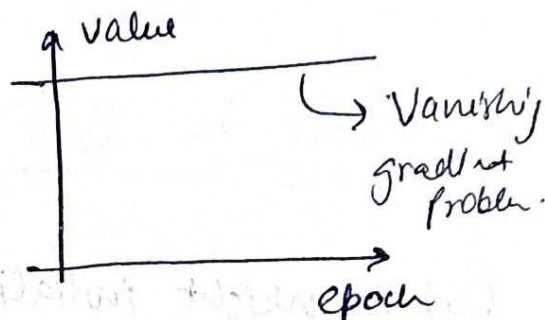 value
Vanishing
gradient
problem.
epoch